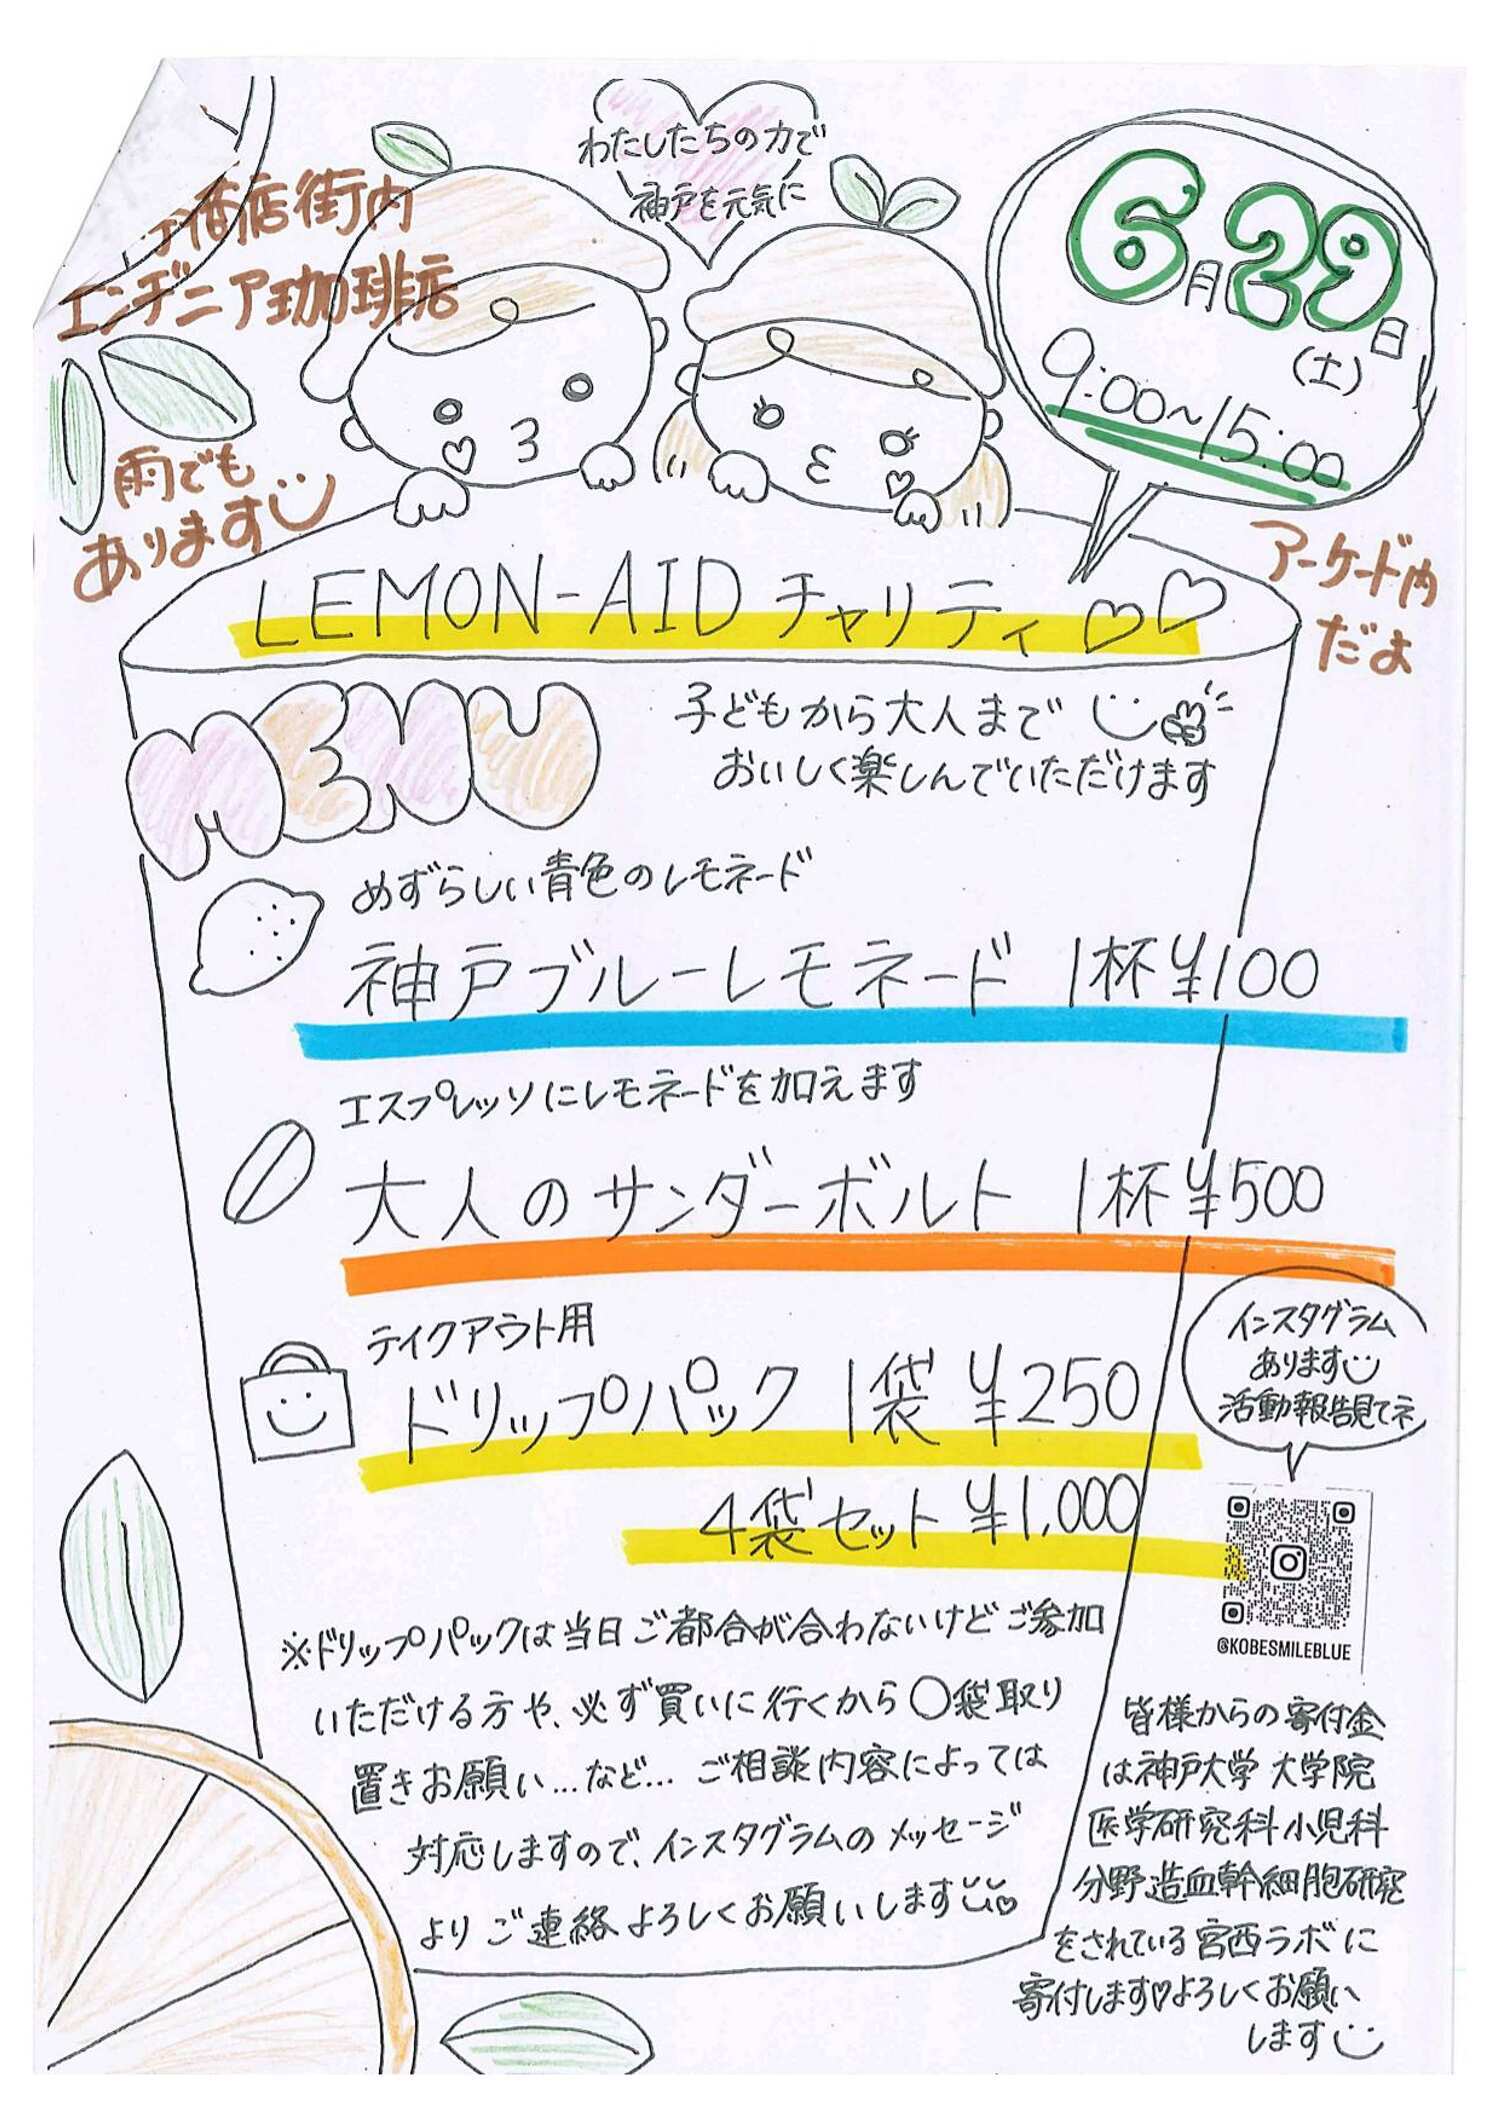 わたしたちの力で
神戸を元気に
商店街内
エンヂニア珈琲店
6月29日
(土)
9:00~15:00
雨でも
あります
アーケード内
だよ
LEMON-AID チャリティ
MENU
子どもから大人まで
おいしく楽しんでいただけます
めずらしい青色のレモネード
神戸ブルーレモネード 1杯¥100
エスプレッソにレモネードを加えます
大人のサンダーボルト 1杯¥500
テイクアウト用
ドリップパック 1袋 ¥250
4袋セット ¥1,000
インスタグラム
あります
活動報告見てネ
@KOBESMILEBLUE
※ドリップパックは当日ご都合が合わないけどご参加
いただける方や、必ず買いに行くから〇袋取り
置きお願い…など… ご相談内容によっては
対応しますので、インスタグラムのメッセージ
よりご連絡よろしくお願いします
皆様からの寄付金
は神戸大学 大学院
医学研究科小児科
分野造血幹細胞研究
をされている宮西ラボに
寄付します♡よろしくお願い
します